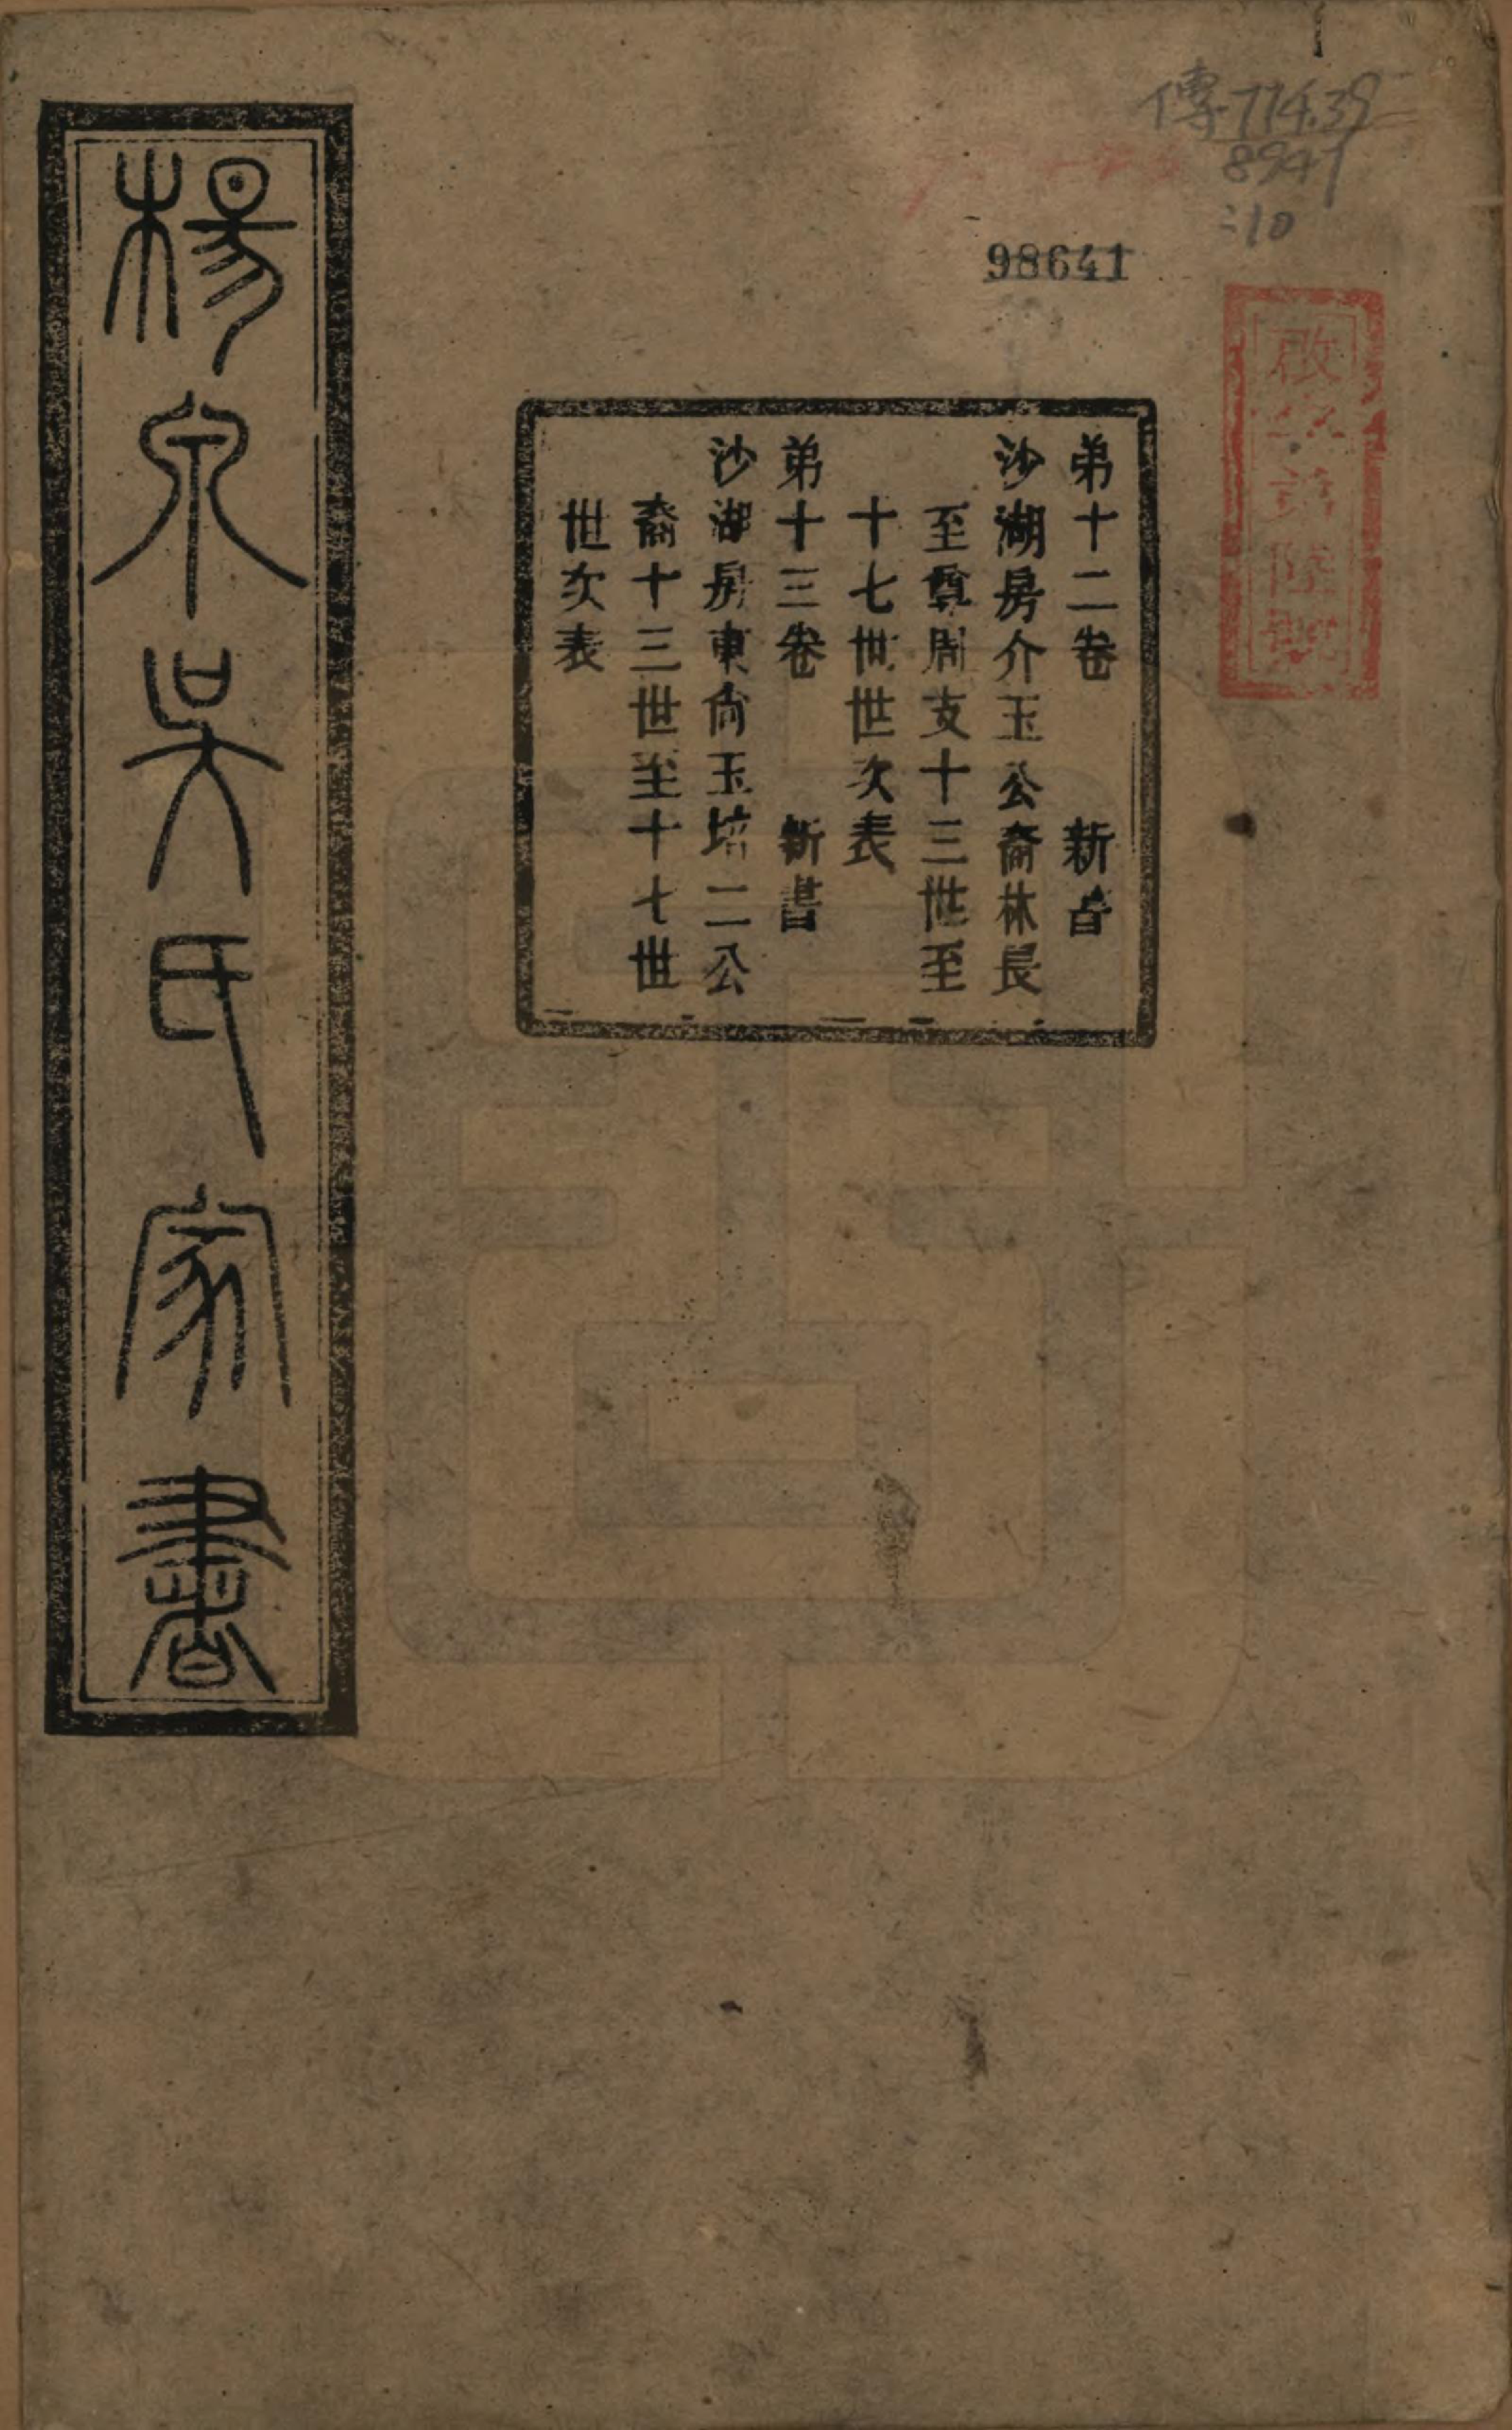 傳774.39
8941
:10
98641
弟十二卷 新書
沙湖房介玉公裔林長
至尊周支十三世至
十七世世次表
弟十三卷 新書
沙湖房東尙玉培二公
裔十三世至十七世
世次表
楊泉吳氏家書